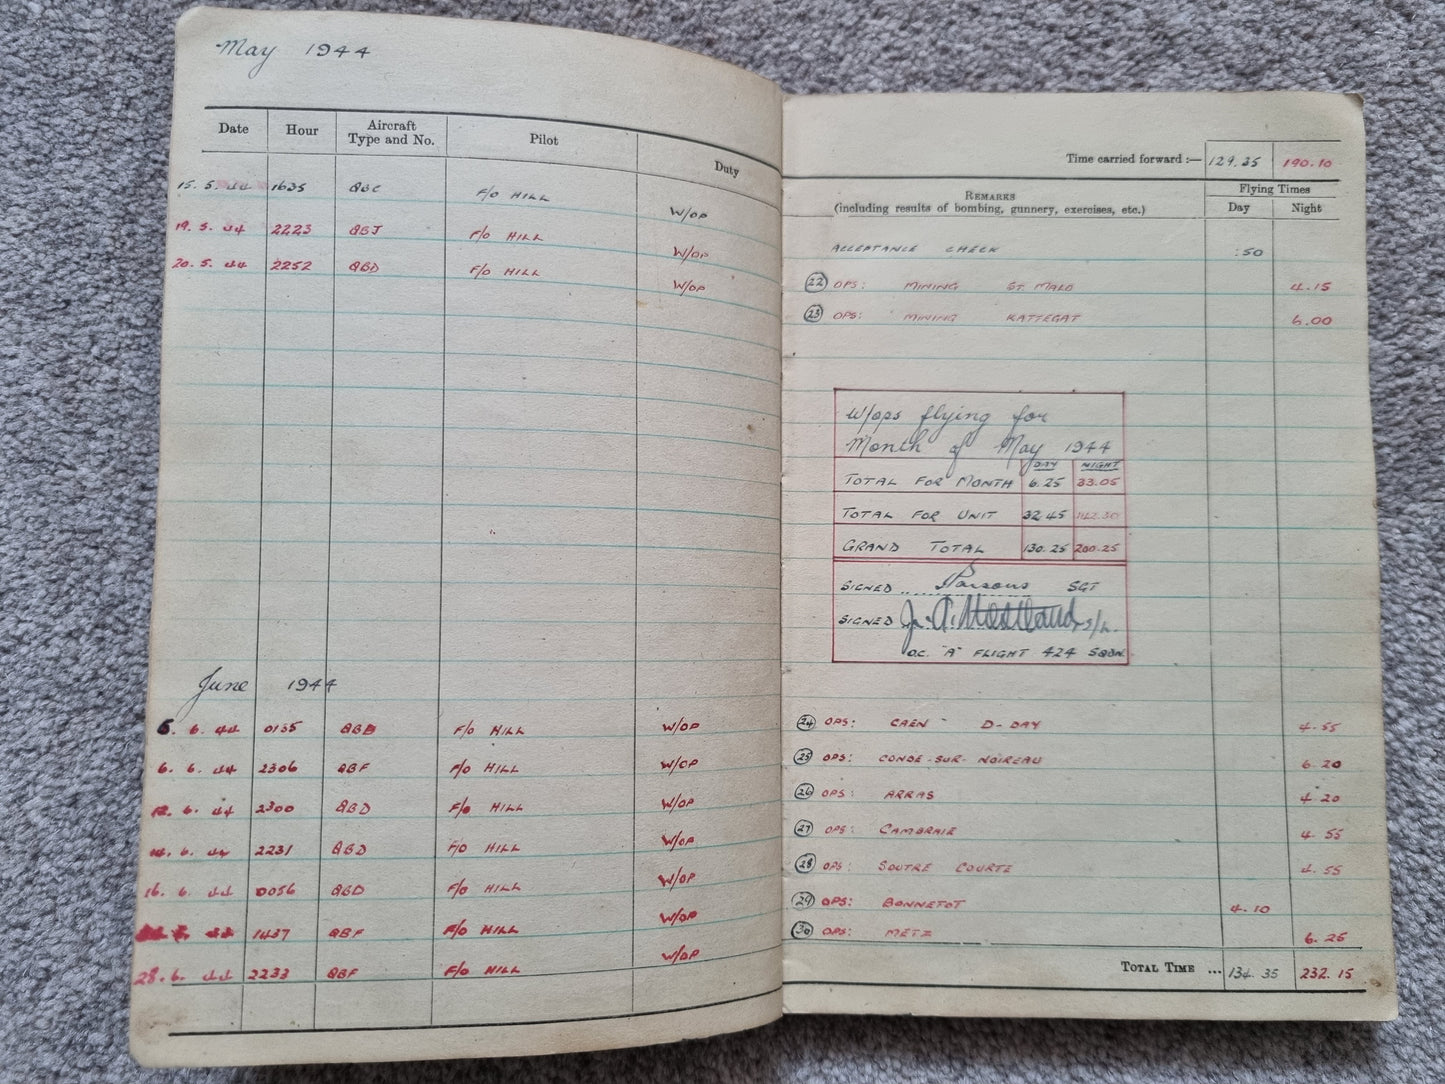 May 1944
Date Hour Aircraft Type and No. Pilot Duty
15. 5. 44 1635 QBC F/O HILL W/OP
19. 5. 44 2223 QBJ F/O HILL W/OP
20. 5. 44 2252 QBD F/O HILL W/OP
June 1944
5. 6. 44 0135 QBB F/O HILL W/OP
6. 6. 44 2306 QBF F/O HILL W/OP
12. 6. 44 2300 QBD F/O HILL W/OP
14. 6. 44 2231 QBD F/O HILL W/OP
16. 6. 44 0056 QBD F/O HILL W/OP
1437 QBF F/O HILL W/OP
28. 6. 44 2233 QBF F/O HILL W/OP
Time carried forward :— 129.35 190.10
REMARKS
(including results of bombing, gunnery, exercises, etc.)
Flying Times
Day Night
ACCEPTANCE CHECK :50
22 OPS: MINING ST. MALO 4.15
23 OPS: MINING KATTEGAT 6.00
W/ops flying for
Month of May 1944
DAY NIGHT
TOTAL FOR MONTH 6.25 33.05
TOTAL FOR UNIT 32.45 142.30
GRAND TOTAL 130.25 200.25
SIGNED Parsons SGT
SIGNED S/L.
O.C. "A" FLIGHT 424 SQDN.
24 OPS: CAEN - D-DAY 4.55
25 OPS: CONDE-SUR-NOIREAU 6.20
26 OPS: ARRAS 4.20
27 OPS: CAMBRAIE 4.55
28 OPS: SOUTRE COURTE 4.55
29 OPS: BONNETOT 4.10
30 OPS: METZ 6.25
TOTAL TIME ... 134.35 232.15